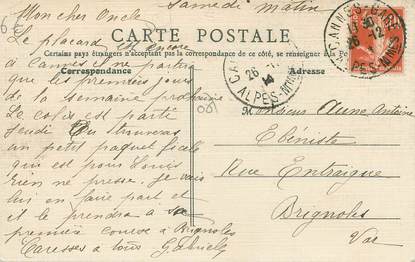 Samedi matin
Mon cher Oncle
CARTE POSTALE
Certains pays étrangers n'acceptant pas la correspondance de ce côté, se renseigner à la
Correspondance
Adresse
Le placard est encore
à Cannes il ne partira
que les premiers jours
de la semaine prochaine
Le colis est parti
Jeudi tu trouveras
un petit paquet ficelé
qui est pour Louis
rien ne presse. Je vais
lui en faire part
et il le prendra à sa
première course à Brignoles
Caresses à tous Gabriel
CANNES-GARE
26-12
ALPES-MMES
26-12
14
ALPES-MMES
Monsieur Aune Antoine
Ebéniste
Rue Entraigue
Brignoles
Var